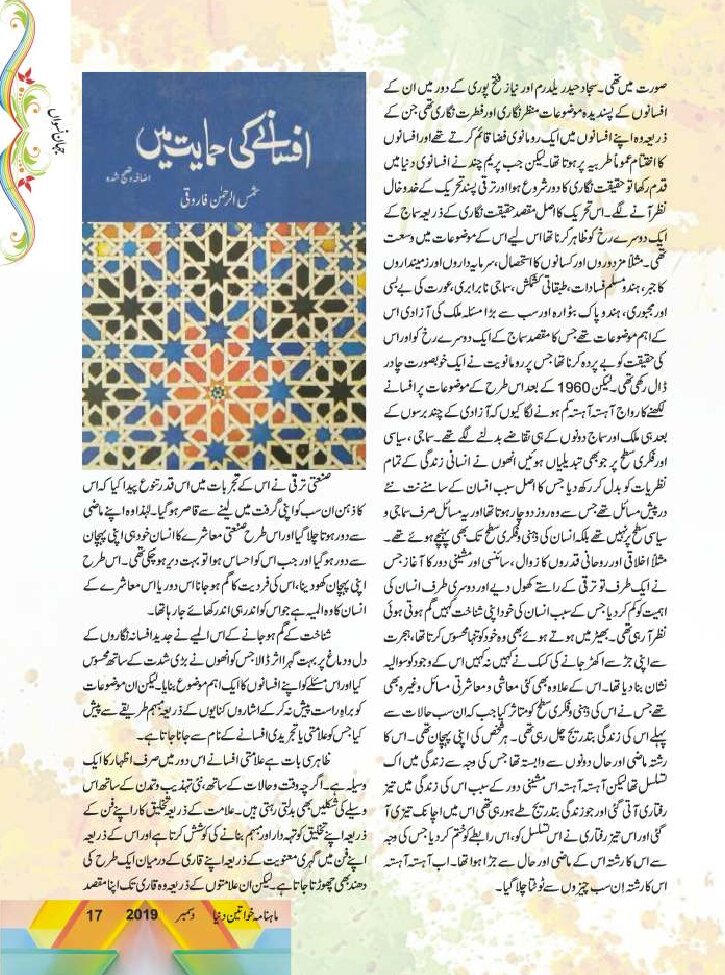 جہانِ نسواں
صورت میں تھی۔ سجاد حیدر یلدرم اور نیاز فتح پوری کے دور میں ان کے
افسانوں کے پسندیدہ موضوعات منظر نگاری اور فطرت نگاری تھی جن کے
ذریعہ وہ اپنے افسانوں میں ایک رومانوی فضا قائم کرتے تھے اور افسانوں
کا اختتام عموماً طربیہ پر ہوتا تھا۔ لیکن جب پریم چند نے افسانوی دنیا میں
قدم رکھا تو حقیقت نگاری کا دور شروع ہوا اور ترقی پسند تحریک کے خدوخال
نظر آنے لگے۔ اس تحریک کا اصل مقصد حقیقت نگاری کے ذریعہ سماج کے
ایک دوسرے رخ کو ظاہر کرنا تھا اس لیے اس کے موضوعات میں وسعت
تھی۔ مثلاً مزدوروں اور کسانوں کا استحصال، سرمایہ داروں اور زمینداروں
کا جبر، ہندو مسلم فسادات، طبقاتی کشمکش، سماجی نابرابری، عورت کی بے بسی
اور مجبوری، ہندو پاک بٹوارہ اور سب سے بڑا مسئلہ ملک کی آزادی اس
کے اہم موضوعات تھے جس کا مقصد سماج کے ایک دوسرے رخ کو اور اس
کی حقیقت کو بے پردہ کرنا تھا جس پر رومانویت نے ایک خوبصورت چادر
ڈال رکھی تھی۔ لیکن 1960 کے بعد اس طرح کے موضوعات پر افسانے
لکھنے کا رواج آہستہ آہستہ کم ہونے لگا کیوں کہ آزادی کے چند برسوں کے
بعد ہی ملک اور سماج دونوں کے ہی تقاضے بدلنے لگے تھے۔ سماجی، سیاسی
اور فکری سطح پر جو بھی تبدیلیاں ہوئیں انھوں نے انسانی زندگی کے تمام
نظریات کو بدل کر رکھ دیا جس کا اصل سبب انسان کے سامنے نت نئے
درپیش مسائل تھے جس سے وہ روز دوچار ہوتا تھا اور یہ مسائل صرف سماجی و
سیاسی سطح پر نہیں تھے بلکہ انسان کی ذہنی و فکری سطح تک بھی پہنچے ہوئے تھے۔
مثلاً اخلاقی اور روحانی قدروں کا زوال، سائنسی اور مشینی دور کا آغاز جس
نے ایک طرف تو ترقی کے راستے کھول دیے اور دوسری طرف انسان کی
اہمیت کو کم کر دیا جس کے سبب انسان کی خود اپنی شناخت کہیں گم ہوتی ہوئی
نظر آ رہی تھی۔ بھیڑ میں ہوتے ہوئے بھی وہ خود کو تنہا محسوس کرتا تھا، ہجرت
سے اپنی جڑ سے اکھڑ جانے کی کسک نے کہیں نہ کہیں اس کے وجود کو سوالیہ
نشان بنا دیا تھا۔ اس کے علاوہ بھی کئی معاشی و معاشرتی مسائل وغیرہ بھی
تھے جس نے اس کی ذہنی و فکری سطح کو متاثر کیا جب کہ ان سب حالات سے
پہلے اس کی زندگی بتدریج چل رہی تھی۔ ہر شخص کی اپنی پہچان تھی۔ اس کا
رشتہ ماضی اور حال دونوں سے وابستہ تھا جس کی وجہ سے زندگی میں اک
تسلسل تھا لیکن آہستہ آہستہ اس مشینی دور کے سبب اس کی زندگی میں تیز
رفتاری آتی گئی اور جو زندگی بتدریج طے ہو رہی تھی اس میں اچانک تیزی آ
گئی اور اس تیز رفتاری نے اس تسلسل کو، اس رابطے کو ختم کر دیا جس کی وجہ
سے اس کا رشتہ اس کے ماضی اور حال سے جڑا ہوا تھا۔ اب آہستہ آہستہ
اس کا رشتہ اِن سب چیزوں سے ٹوٹتا چلا گیا۔
افسانے کی حمایت میں
اضافہ و تصحیح شدہ
شمس الرحمٰن فاروقی
صنعتی ترقی نے اس کے تجربات میں اس قدر تنوع پیدا کیا کہ اس
کا ذہن ان سب کو اپنی گرفت میں لینے سے قاصر ہو گیا۔ لہٰذا وہ اپنے ماضی
سے دور ہوتا چلا گیا اور اس طرح صنعتی معاشرے کا انسان خود ہی اپنی پہچان
سے دور ہو گیا اور جب اس کو احساس ہوا تو بہت دیر ہو چکی تھی۔ اس طرح
اپنی پہچان کھو دینا، اس کی فردیت کا گم ہو جانا اس دور یا اس معاشرے کے
انسان کا وہ المیہ ہے جو اس کو اندر ہی اندر کھائے جا رہا تھا۔
شناخت کے گم ہو جانے کے اس المیے نے جدید افسانہ نگاروں کے
دل و دماغ پر بہت گہرا اثر ڈالا جس کو انھوں نے بڑی شدت کے ساتھ محسوس
کیا اور اس مسئلے کو اپنے افسانوں کا ایک اہم موضوع بنایا۔ لیکن ان موضوعات
کو براہِ راست پیش نہ کر کے اشاروں کنایوں کے ذریعہ مبہم طریقے سے پیش
کیا جس کو علامتی یا تجریدی افسانے کے نام سے جانا جاتا ہے۔
ظاہر سی بات ہے علامتی افسانے اس دور میں صرف اظہار کا ایک
وسیلہ ہے۔ اگرچہ وقت و حالات کے ساتھ، نئی تہذیب و تمدن کے ساتھ اس
وسیلے کی شکلیں بھی بدلتی رہتی ہیں۔ علامت کے ذریعہ تخلیق کار اپنے فن کے
ذریعہ اپنے تخلیق کو تہہ دار اور مبہم بنانے کی کوشش کرتا ہے اور اس کے ذریعہ
اپنے فن میں گہری معنویت کے ذریعہ اپنے قاری کے درمیان ایک طرح کی
دھند بھی چھوڑتا جاتا ہے۔ لیکن ان علامتوں کے ذریعہ وہ قاری تک اپنا مقصد
ماہنامہ خواتین دنیا دسمبر 2019 17